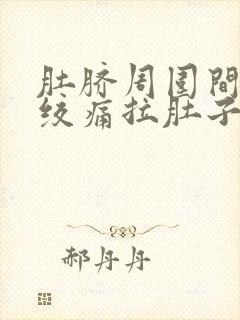 肚脐周围間
绞痛拉肚子
郝丹丹